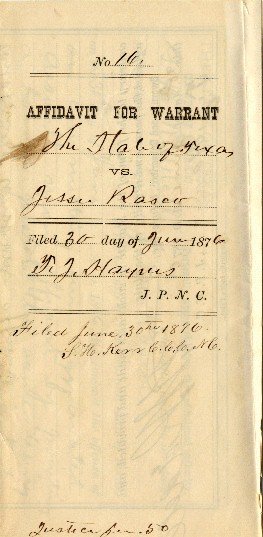 No. 16.
AFFIDAVIT FOR WARRANT
The State of Texas
VS.
Jessie Rascо
Filed 30 day of June 1876
F. J. Haynes
J. P. N. C.
Filed June 30th 1876.
S. H. Kerr C.C.C. N.C.
Justice fee .50